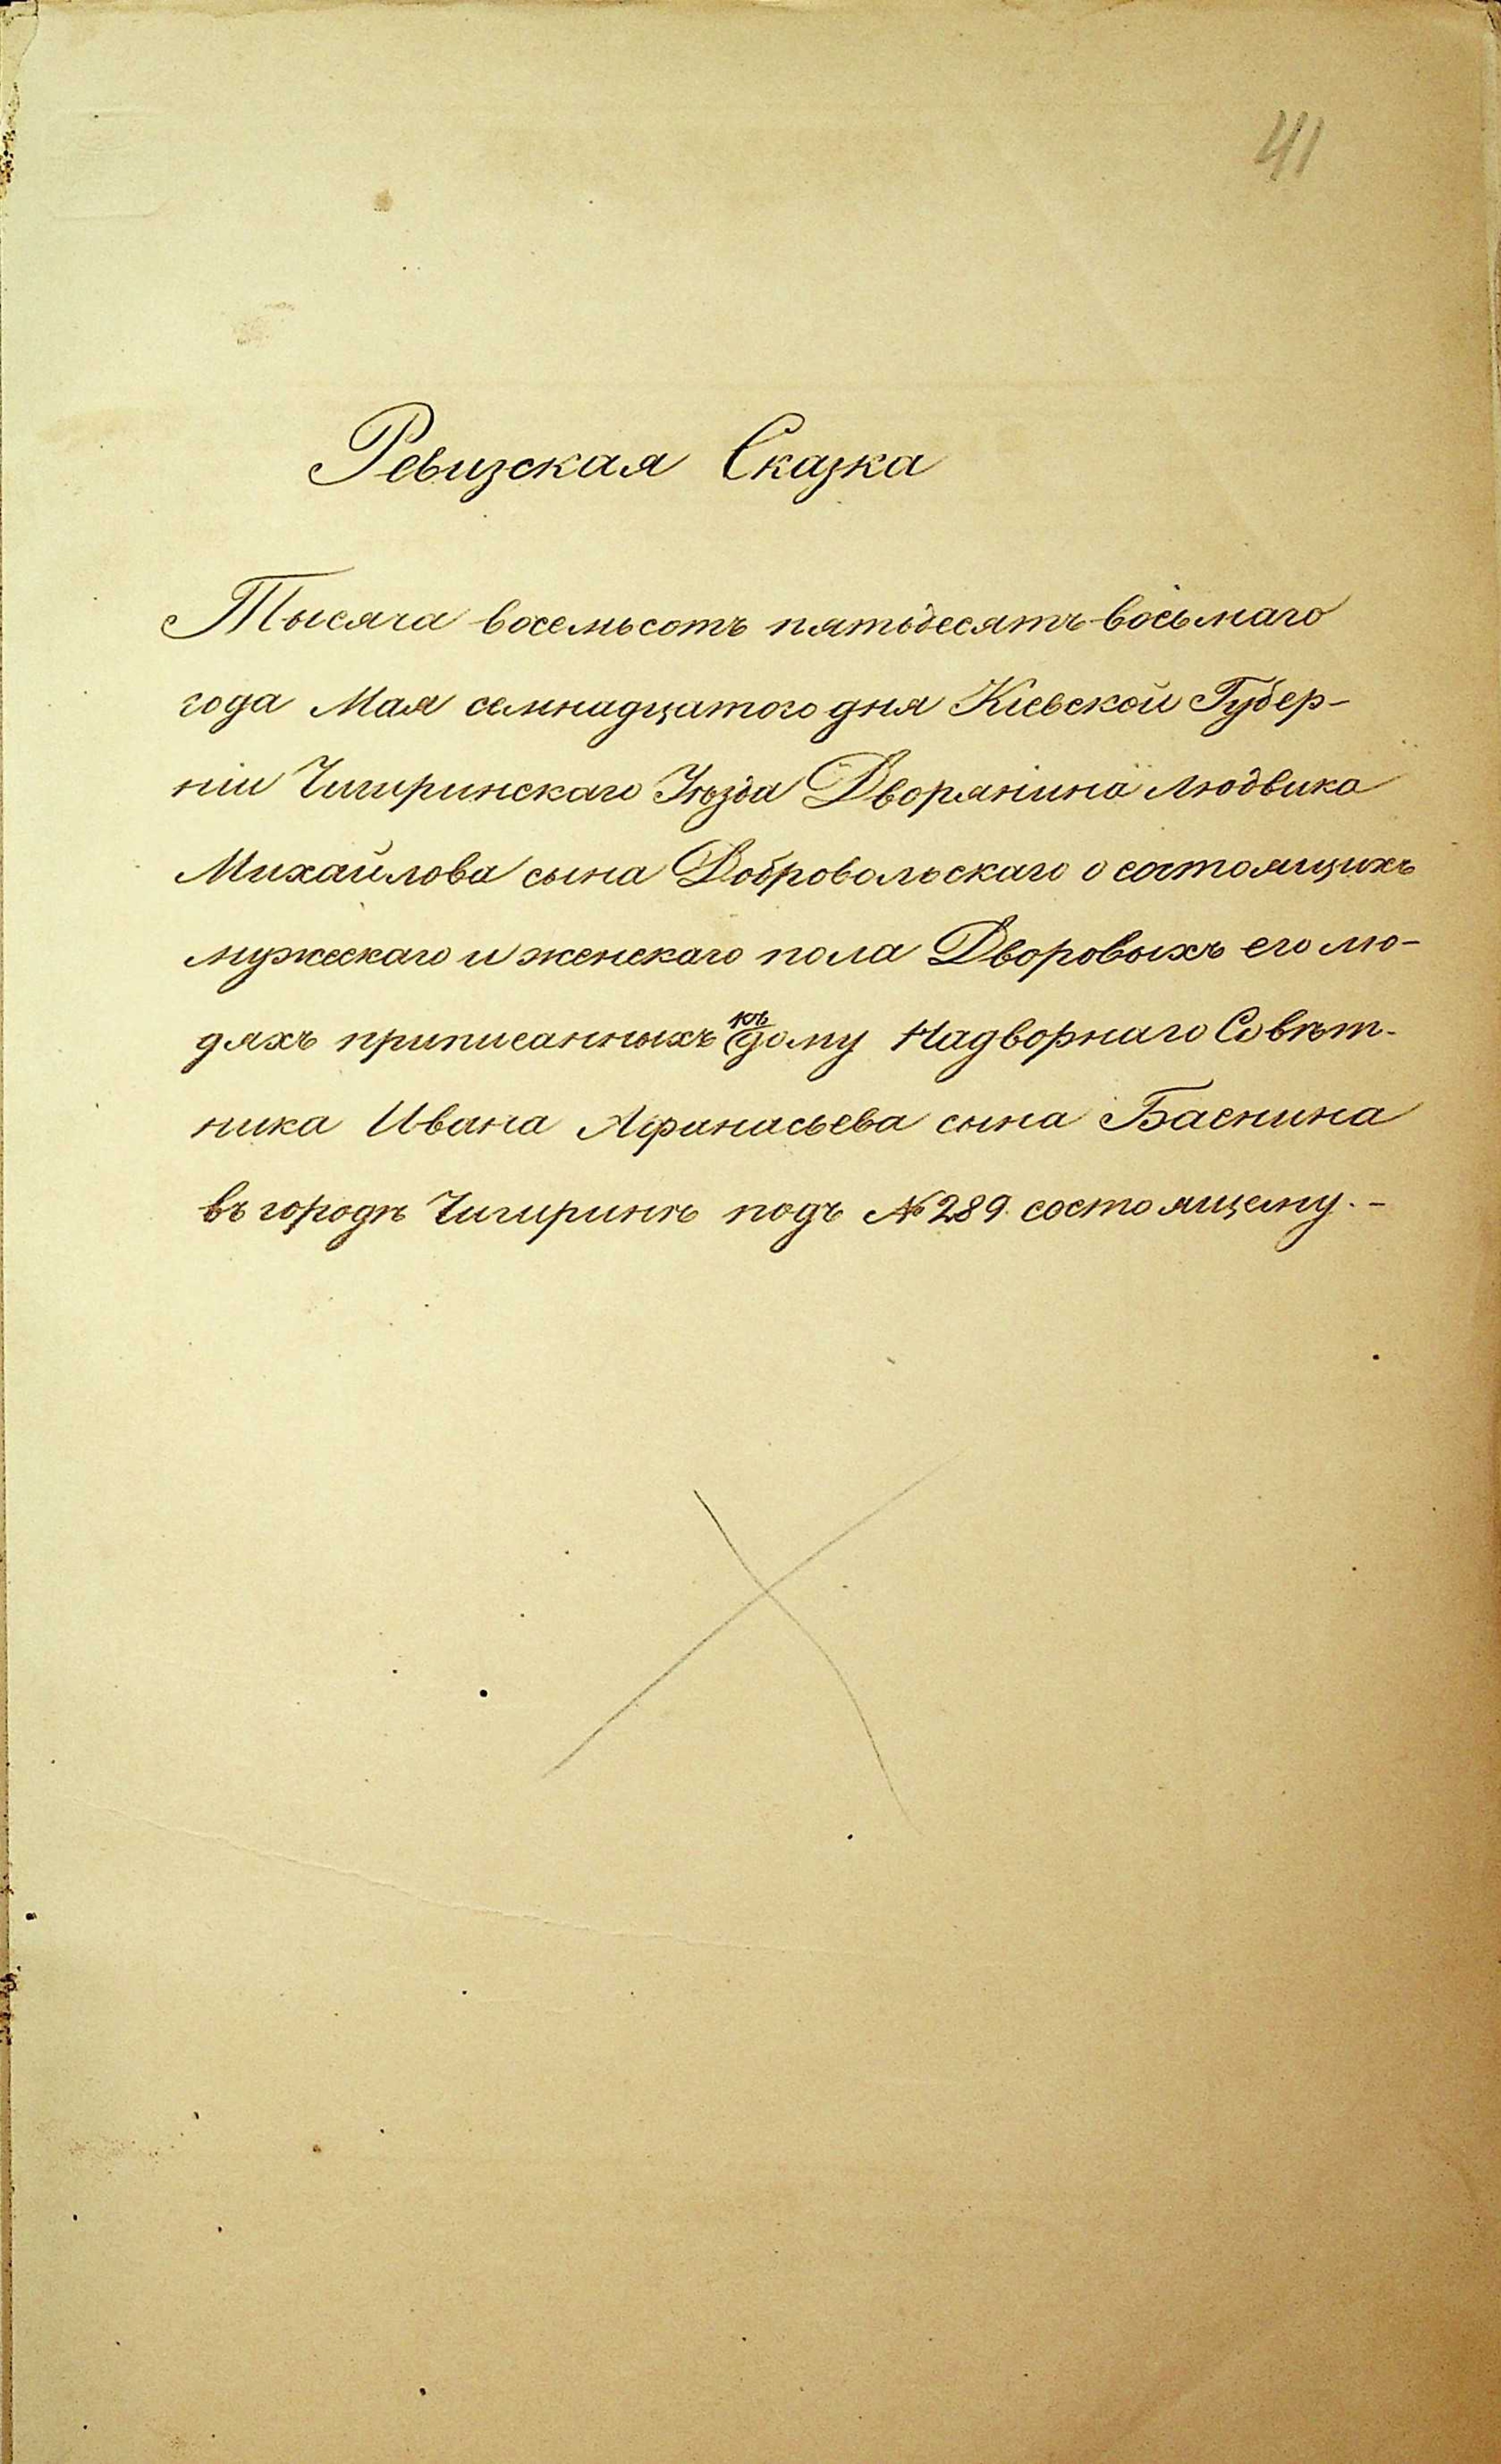 41
Ревизская Сказка
Тысяча восемьсотъ пятьдесятъ восьмаго
года Мая семнадцатого дня Кіевской Губер-
ніи Чигиринскаго Уѣзда Дворянина Людвика
Михайлова сына Добровольскаго о состоящихъ
мужескаго и женскаго пола Дворовыхъ его лю-
дяхъ приписанныхъ къ дому Надворнаго Совѣт-
ника Ивана Афанасьева сына Баенина
въ городѣ Чигиринѣ подъ № 289 состоящему. -